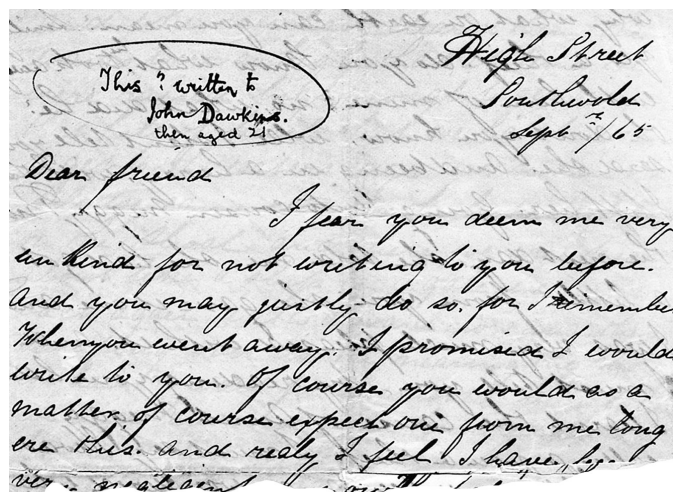 High Street
Southwold
Sept /65
This ? written to
John Dawkins.
then aged 21
Dear friend
I fear you deem me very
unkind for not writing to you before.
And you may justly do so. for I remember
When you went away. I promised I would
write to you. Of course you would as a
matter of course expect one from me long
ere this. and realy I feel I have
very negligent